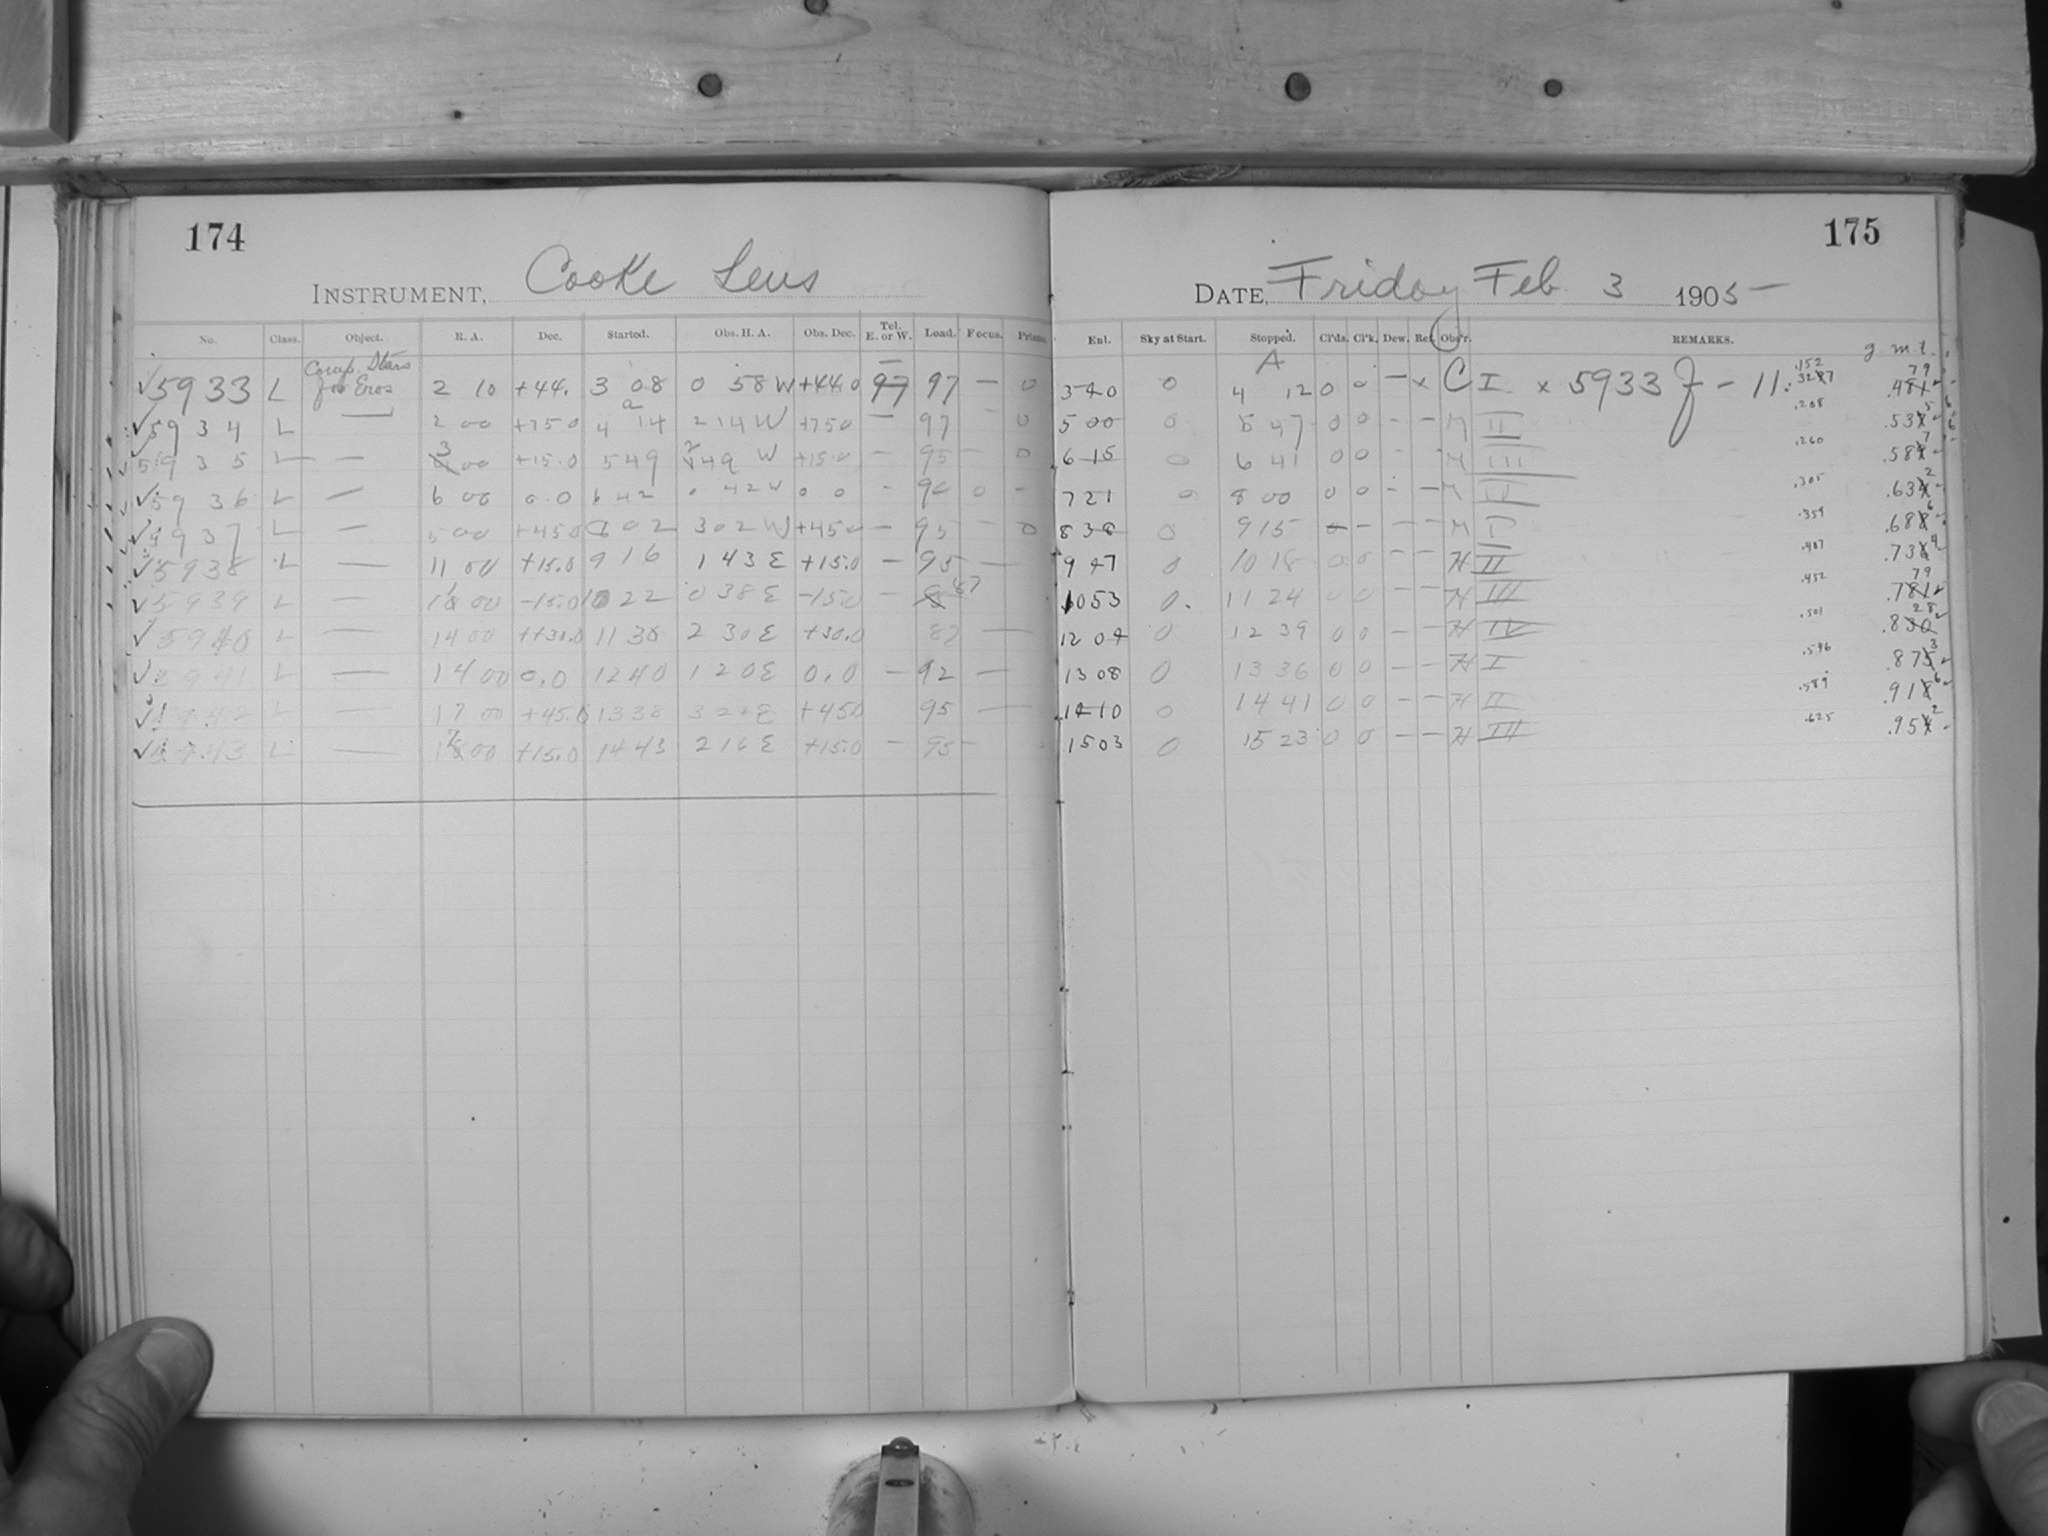 174
INSTRUMENT, Cooke Lens
No. Class. Object. R. A. Dec. Started. Obs. H. A. Obs. Dec. Tel. E. or W. Load. Focus. Prisms.
Comp. Stars
5933 L for Eros 2 10 +44. 3 08 0 58 W +44.0 97 97 — 0
5934 L — 2 00 +75.0 4 14 2 14 W +75 0 — 97 0
5935 L — 3 00 +15.0 5 49 2 49 W +15.0 — 95 — 0
5936 L — 6 00 0.0 6 42 0 42 W 0 0 - 90 0 -
5937 L — 5 00 +45.0 8 02 3 02 W +45.0 — 95 — 0
5938 L — 11 00 +15.0 9 16 1 43 E +15.0 — 95 —
5939 L — 11 00 -15.0 10 22 0 38 E -15.0 - 87
5940 L — 14 00 +30.0 11 30 2 30 E +30.0 87 —
5941 L — 14 00 0.0 12 40 1 20 E 0.0 — 92 —
L — 17 00 +45.0 13 38 3 22 E +45.0 95 —
L — 17 00 +15.0 14 43 2 16 E +15.0 — 95 —
175
DATE, Friday Feb. 3 1905
Enl. Sky at Start. Stopped. Cl'ds. Cl'k. Dew. Ref. Obs'r. REMARKS. g. m. t.
A
340 0 4 12 0 0 — x C I x 5933 J - 11. .152 .479
500 0 5 47 0 0 - - M II .208 .535
615 0 6 41 0 0 - M III .260 .587
721 0 8 00 0 0 - - M IV .305 .632
838 0 9 15 — — — M I .359 .686
947 0 10 18 0 0 — — H II .407 .734
1053 0. 11 24 0 0 — — H III .452 .779
1204 0 12 39 0 0 — — H IV .501 .828
1308 0 13 36 0 0 — — H I .546 .873
1410 0 14 41 0 0 — — H II .589 .916
1503 0 15 23 0 0 — — H III .625 .952